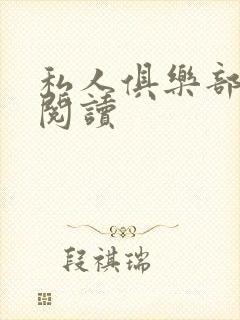 私人俱樂部
閱讀
段祺瑞